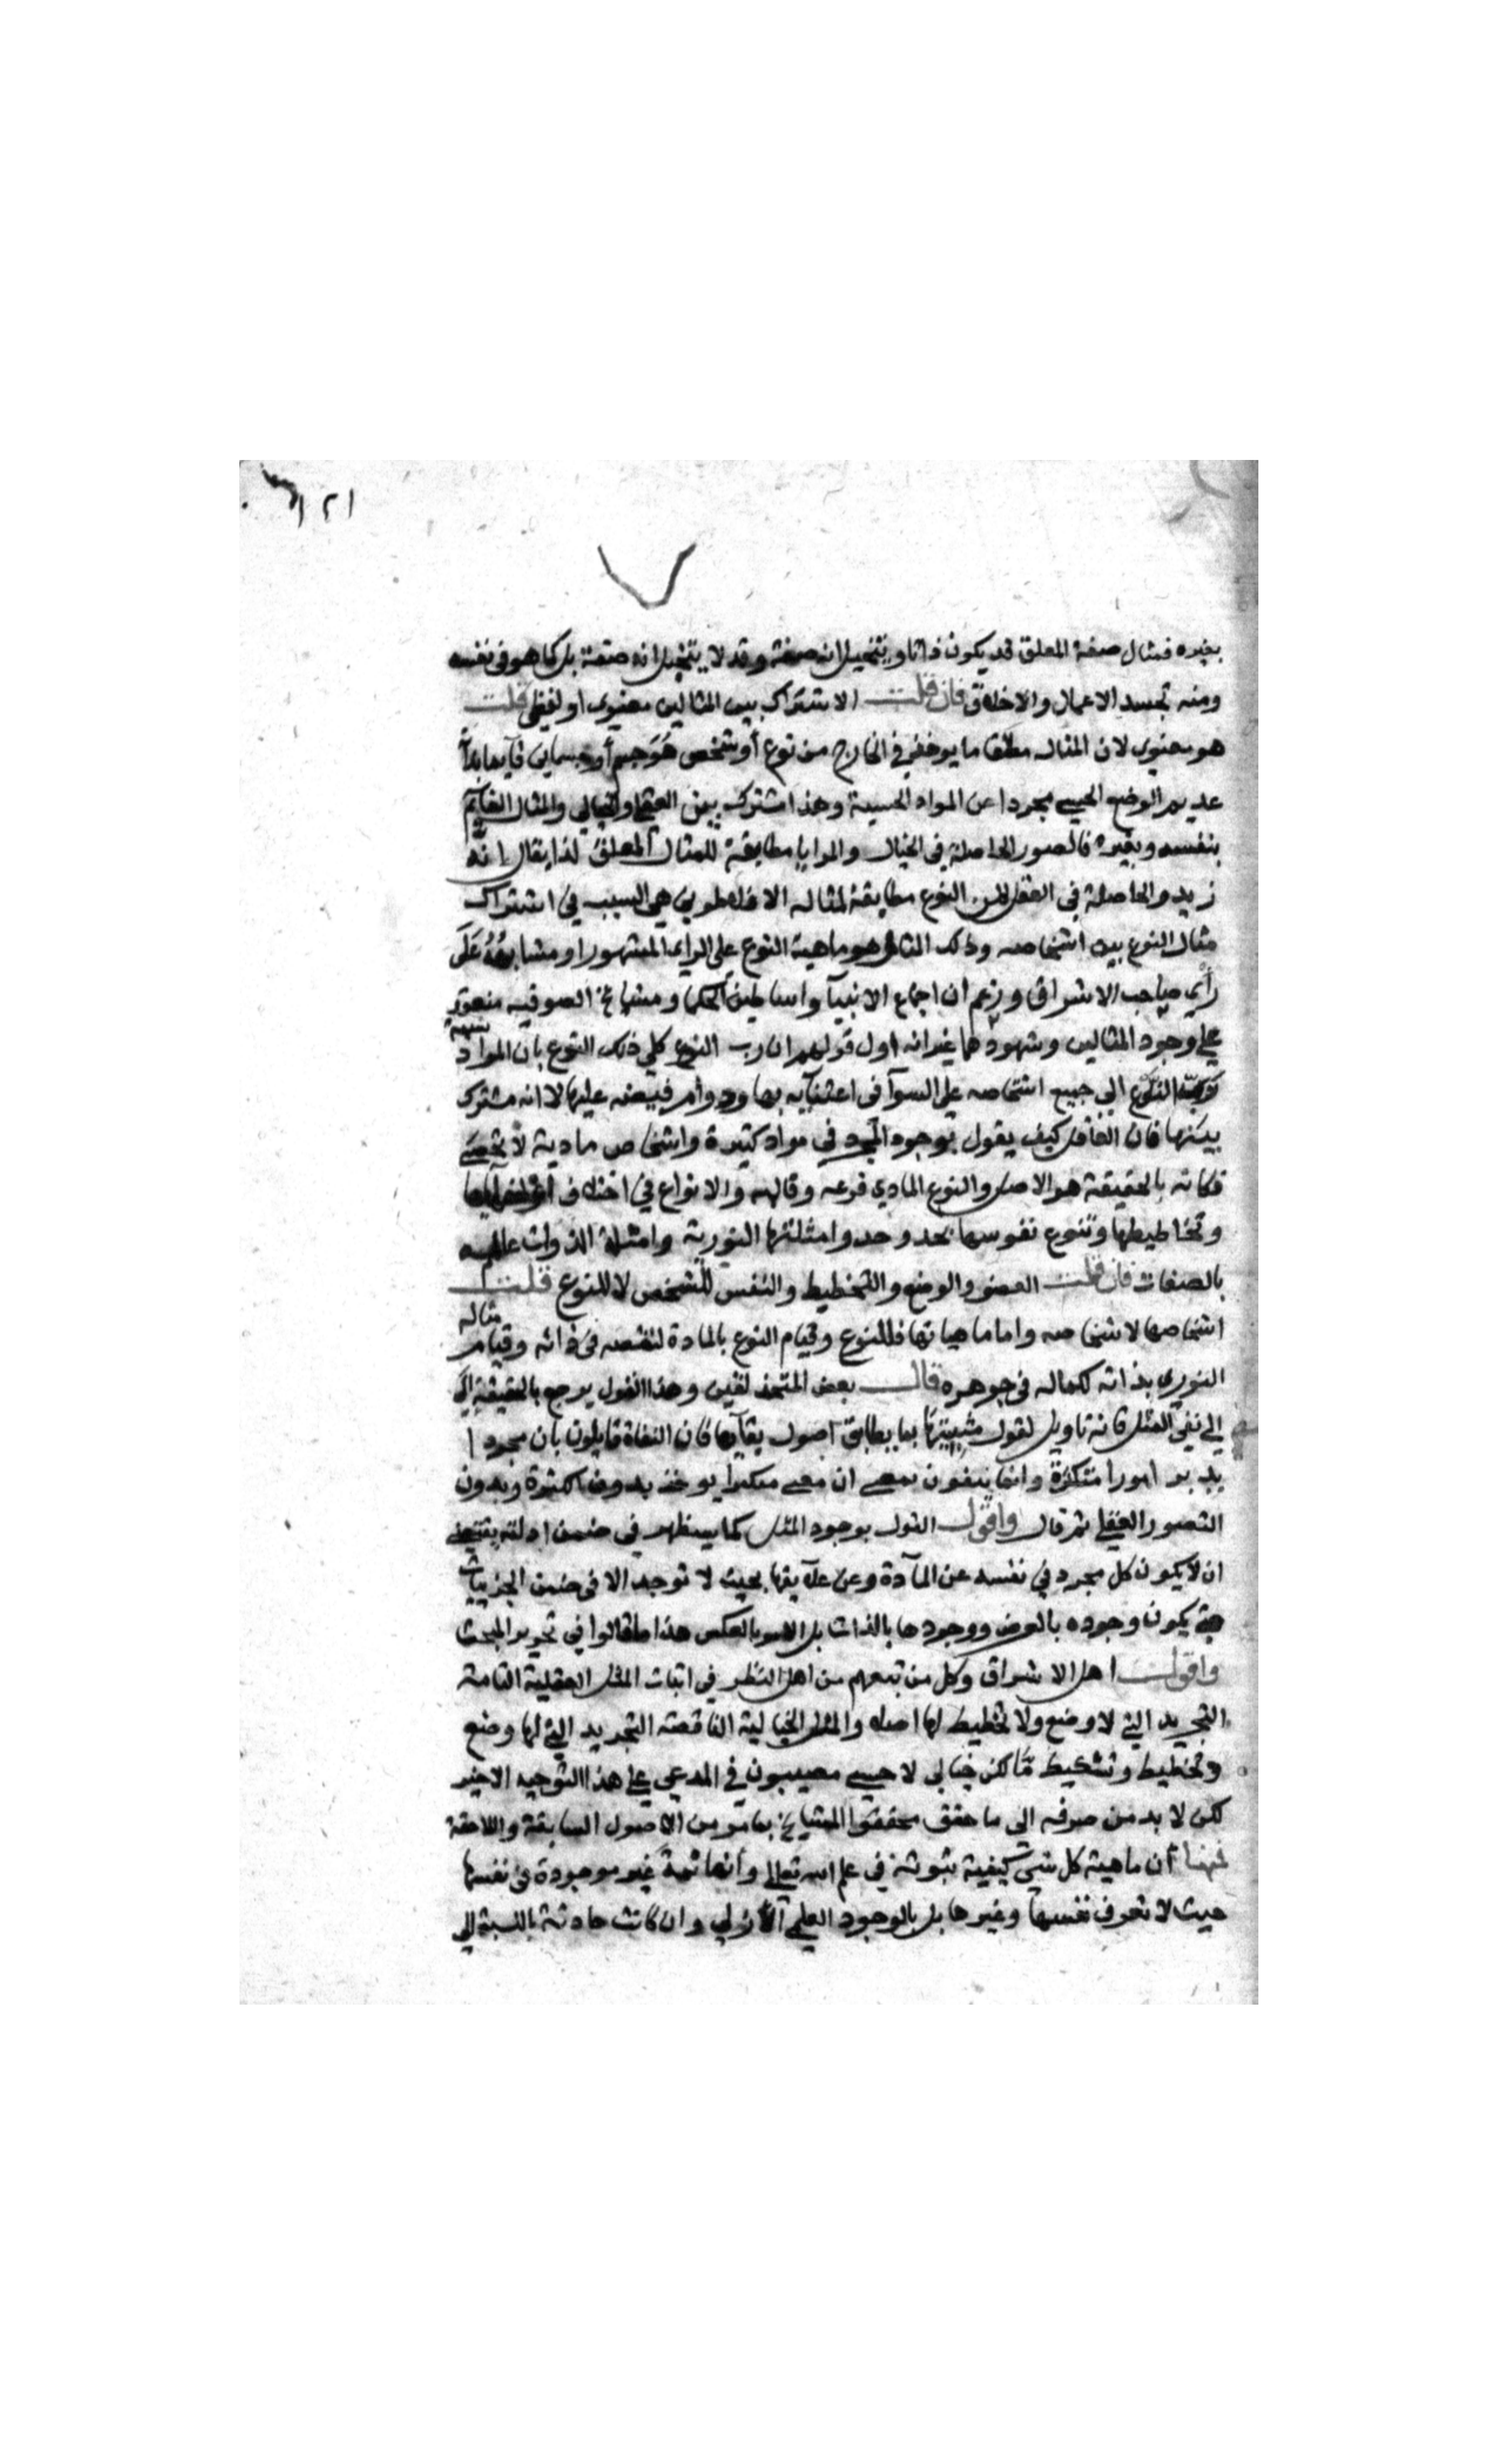 ١٢١
بغيره فمثال صفة المعلق قد يكون ذاتا ويتخيل انه صفة وقد لا يتخيل انه صفة بل كما هو في نفسه
ومنه تجسد الاعمال والاخلاق فان قلت الاشتراك بين المثالين معنوي او لفظي قلت
هو معنوي لان المثال مطلقا ما يوخذ في الخارج من نوع أو شخص جسم أو جسماني
عديم الوضع الحسي مجردا عن المواد الحسية وهذا مشترك بين العقلي والخيالي والمثال القايم
بنفسه وبغيره فالصور الحاصلة في الخيال والمرايا مطابقة للمثال المعلق لذا يقال انه
زيد والحاصلة في العقل من النوع مطابقة لمثاله الافلاطوني هي السبب في اشتراك
مثال النوع بين اشخاصه وذلك المثال هو ماهية النوع على الراي المشهور او مشابهه على
رأي صاحب الاشراق وزعم ان اجماع الانبيآ واساطين الحكما ومشايخ الصوفيه منعقد
علي وجود المثالين وشهودهما غير انه اول قولهم ان رب النوع كلي ذلك النوع بان المراد
النوع الي جميع اشخاصه على السوآ في اعتنآيه بها ودوام فيضه عليها لا انه مشترك
بينها فان العاقل كيف يقول بوجود المجرد في مواد كثيرة واشخاص مادية لا تحصى
فكانه بالحقيقة هو الاصل والنوع المادي فرعه وقالبه والانواع في اختلاف
وتخاطيطها وتنوع نفوسها بحد وحد وامثلتها النورية وامثلة الذوات
بالصفات فان قلت العضو والوضع والتخطيط والنفس للشخص لا للنوع قلت
اشخاصها لاشخاصه واما ماهياتها فللنوع وقيام النوع بالمادة لنقصه في ذاته وقيام مثاله
النوري بذاته لكماله في جوهره قال بعض المتحذلقين وهذا القول يرجع بالحقيقة الى
الي نفي المثل فانه تاويل لقول مثبتيها بما يطابق اصول فان النفاة قايلون بان مجردا
يدبر امورا متكثرة وانما ينفون بمعنى ان معنى متكثرا يوخذ بدون الكثرة وبدون
التصور العقلي ثم قال واقول القول بوجود المثل كما سيظهر في ضمن ادلته يقتضي
ان لا يكون كل مجرد في نفسه عن المآدة وعن علآيقها بحيث لا توجد الا في ضمن الجزييات
حتى يكون وجوده بالعرض ووجودها بالذات بل الامر بالعكس هذا ما قالوا في تحرير المبحث
واقول اهل الاشراق وكل من تبعهم من اهل النظر في اثبات المثل العقلية التامة
التجريد التي لا وضع ولا تخطيط لها اصلا والمثل الخيالية الناقصة التجريد التي لها وضع
وتخطيط وتشكيط مّا لكن خيالي لا حسي مصيبون في المدعي علي هذا التوجيه الاخير
لكن لا بد من صرفه الى ما حقق محققوا المشايخ بما مر من الاصول السابقة واللاحقة
فمنها أن ماهية كل شي كيفية ثبوته في علم الله تعالى وأنها ثمة غير موجودة في نفسها
حيث لا تعرف نفسها وغيرها بل بالوجود العلمي الأزلي وان كانت حادثة بالنسبة الي